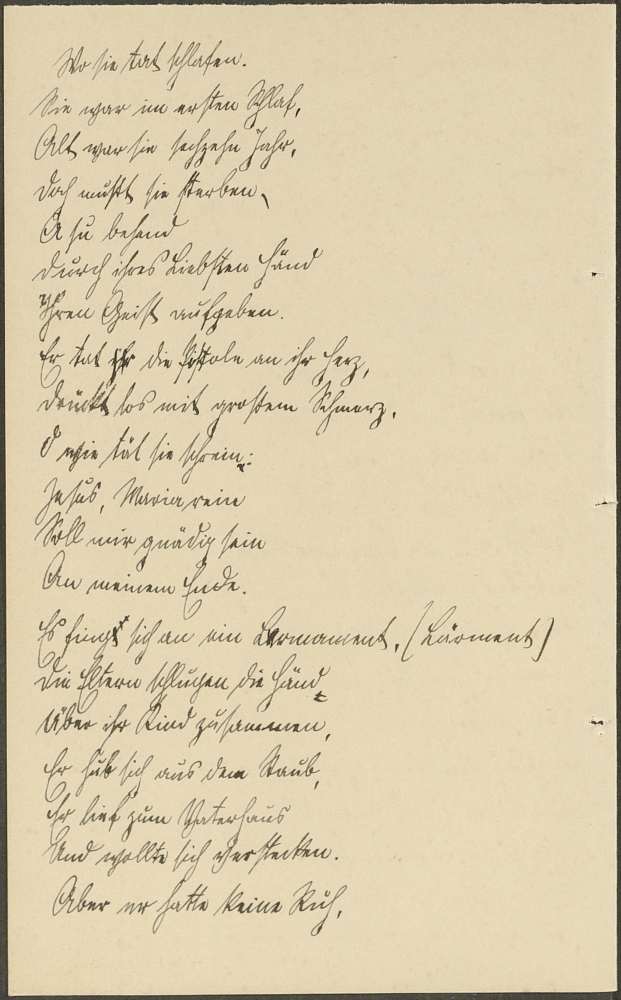 Wo sie tat schlafen.
Sie war im ersten Schlaf,
Alt war sie sechzehn Jahr,
Doch mußt sie sterben,
A su behend
Durch ihres Liebsten Händ
Ihren Geist aufgeben.
Er tat ihr die Pistole an ihr Herz,
Drückt los mit großem Schmerz,
O wie tät sie schrein:
Jesus, Maria rein
Soll mir gnädig sein
An meinem Ende.
Es fing sich an ein Lermament, (Lärment)
Die Eltern schlugen die Händ
Über ihr Kind zusammen,
Er hub sich aus dem Staub,
Er lief zum Vaterhaus
Und wollte sich verstecken.
Aber er hatte keine Ruh,